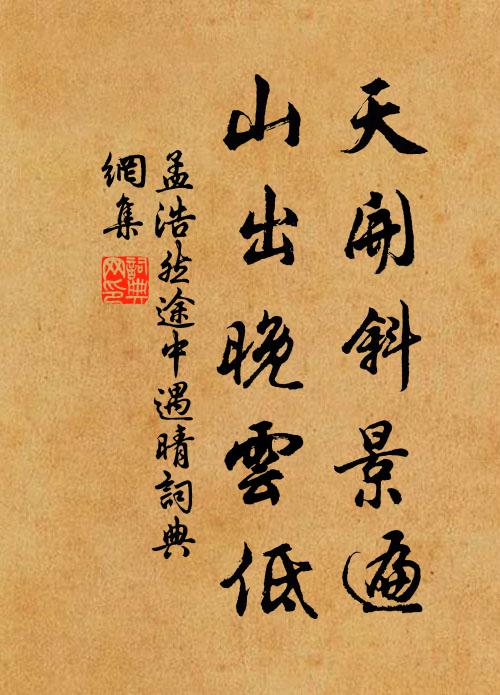 天開斜景遍
山出晚雲低
孟浩然途中遇晴詞典
網集
詞典
網印